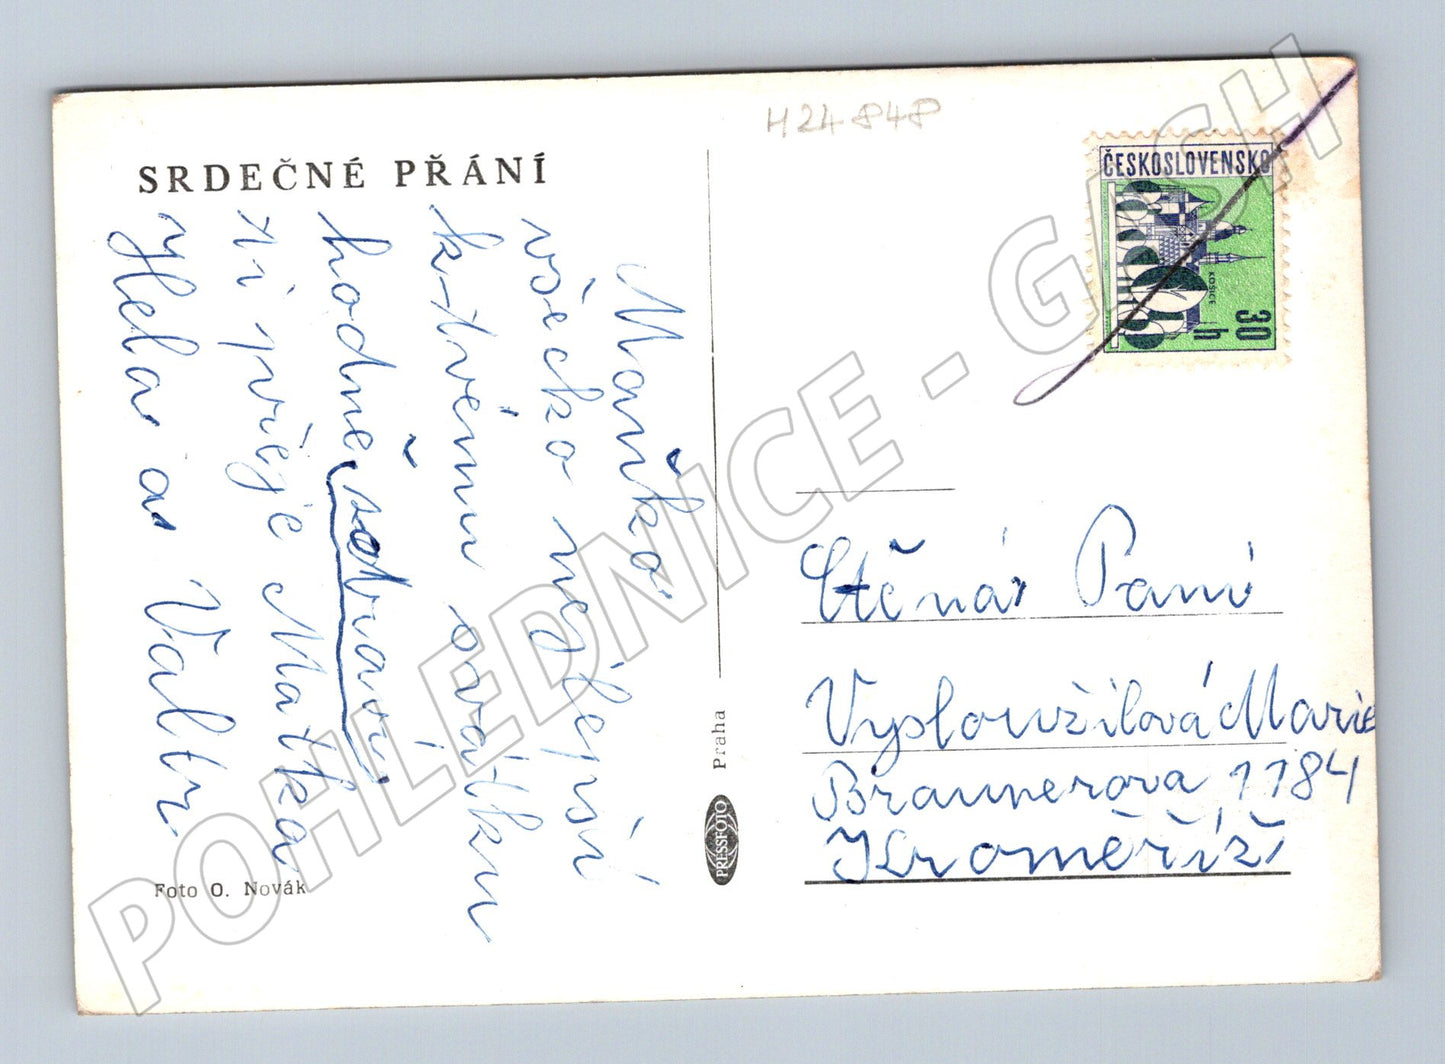 H24848
SRDEČNÉ PŘÁNÍ
Mařko.
všecko nejlepší
k tvému svátku
hodně zdraví
ti přeje Matka
Hela a Valtr
Foto O. Novák
PRESSFOTO Praha
ČESKOSLOVENSKO
KOŠICE
30 h
Ctěná Paní
Vysloužilová Marie
Braunerova 1184
Kroměříž
POHLEDNICE - GASH